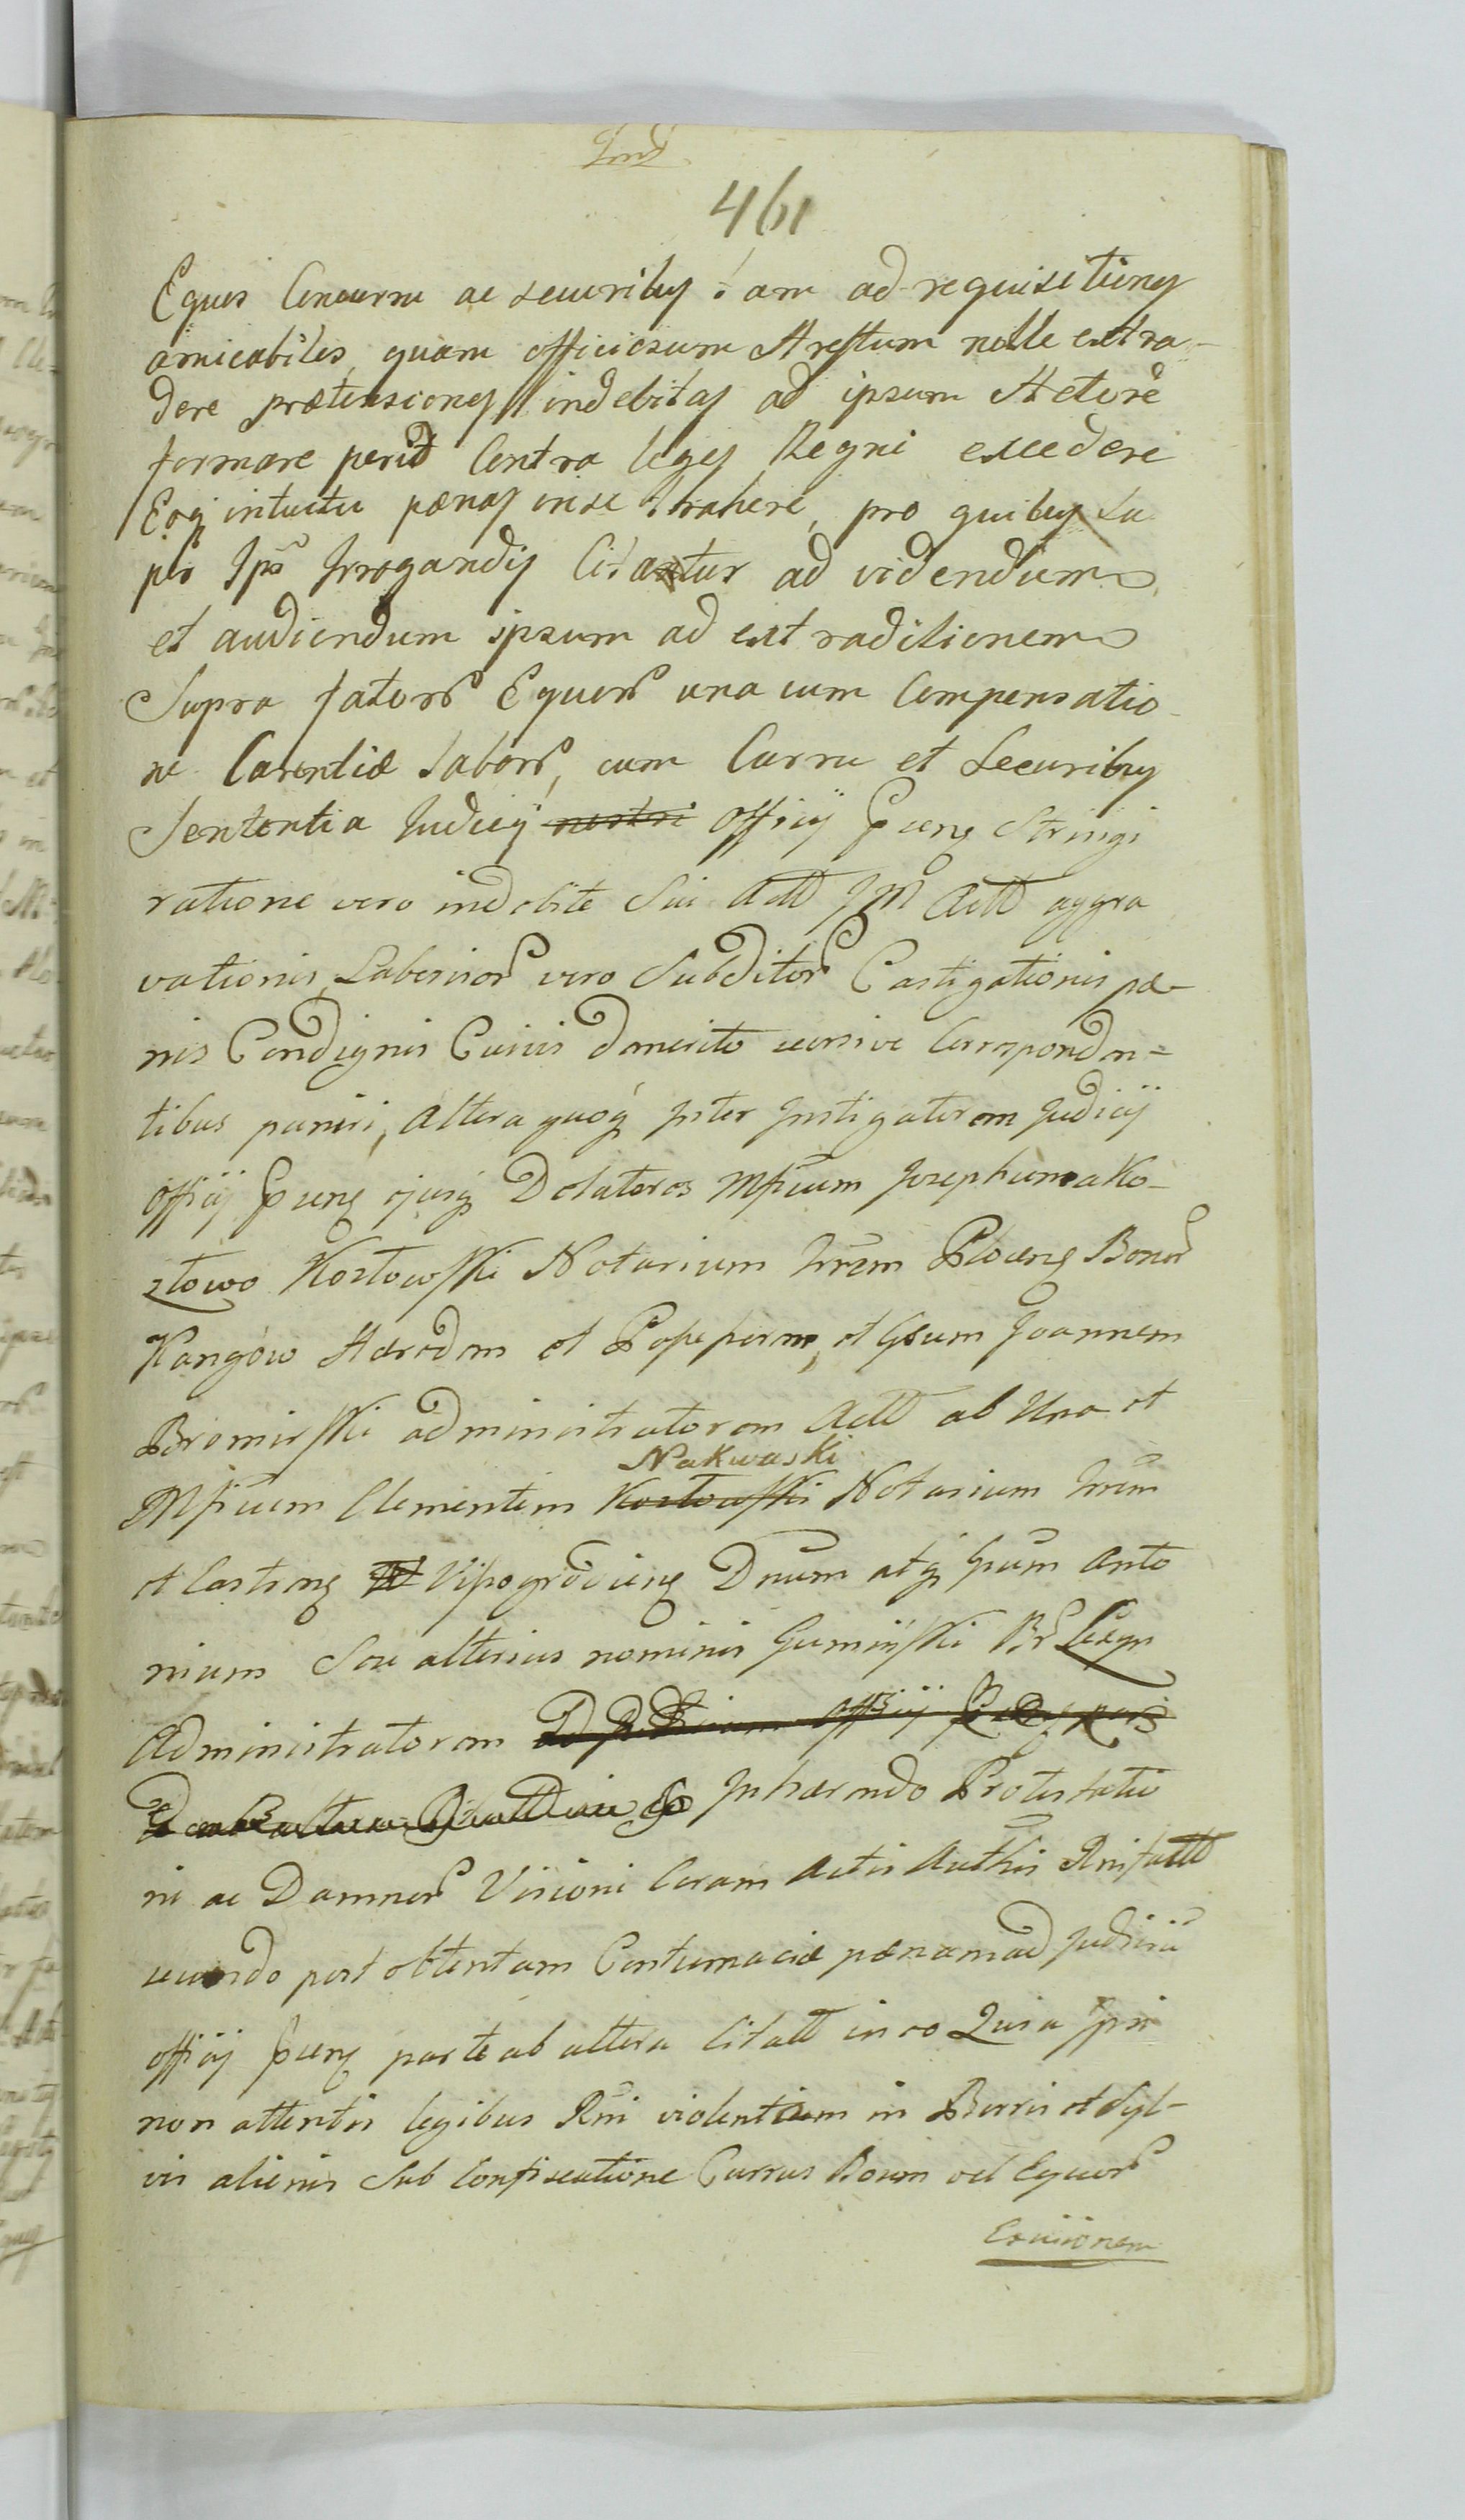 461
Equis Concurru ac securibus tam ad requisitiones
amicabiles, quam officiosum Arestum nolle extra-
dere prætensiones indebitas ad ipsum Actorē
formare perid Contra leges Regni excedere
Eoq intuitu pænas in se trahere, pro quibus su
per Ips Irrogandis Citantur ad videndum
et audiendum ipsum ad extraditionem
Supra fator Equor una cum Compensatio
ne Carentiæ labor, cum Curru et Securibus
Sententia Judicij nostri Officij stringi
ratione vero indebite Sui Actt JM Actt aggra
vationis, Laborior vero Subditor Castigationis pæ-
nis Condignis Cuivis demerito Correspondn=
tibus puniri, Altera quoq Inter Instigatorem Judicij
Officij ejusq Delatores Mficum Josephum a Ko-
złowo Kozłowski Notarium Bonor
Kangow Hæredem et et Gsum Joannem
Bromirski administratorem Actt ab Una et
Nakwaski
Mficum Clementem Kozłowski Notarium
et Castrens Vissogrodiens Dnum atq Gsum Anto
nium Seu alterius nominis Gumiński
Administratorem
Inhærendo Protestatio
ni ac Damnor Visioni Coram Actis Authis
post obtentam Contumaciæ pænam ad Judiciu
officij parte ab altera Citatt in eo Quia Ipsi
non attentis legibus Rni violentiam in Borris et Syl-
vis alienis Sub Confiscatione Currus Boum vel Equor